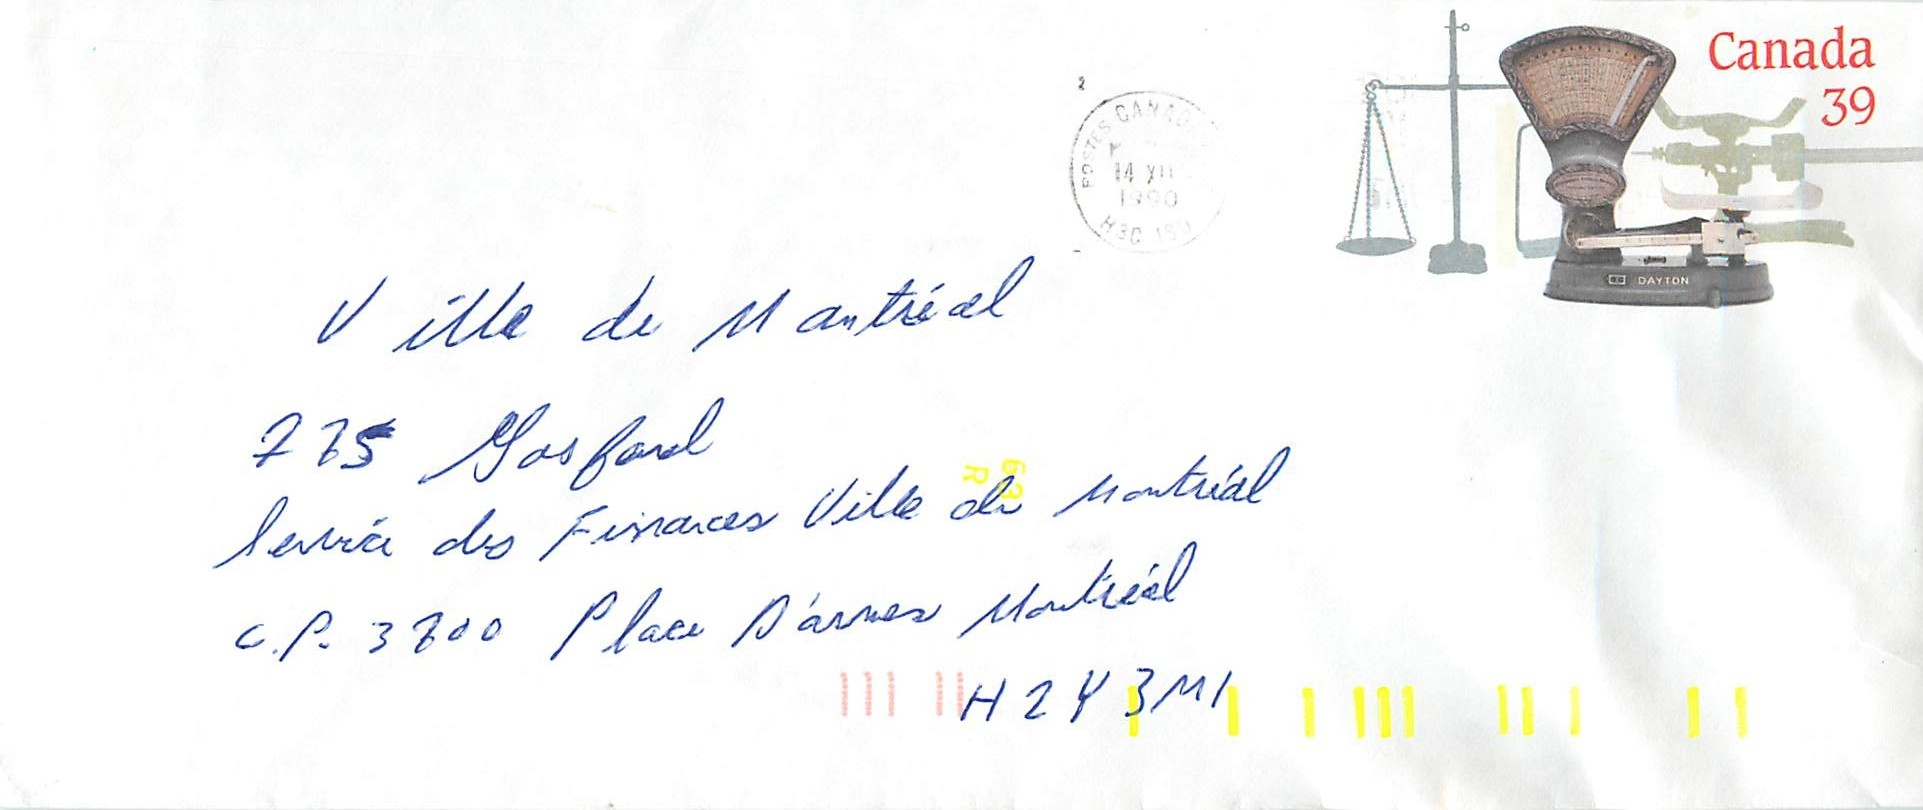 Canada
39
POSTES CANADA
14 XII
1990
H3C 1S0
DAYTON
Ville de Montréal
775 Gosford
63
R
Service des Finances Ville de Montréal
C.P. 3700 Place D'armes Montréal
H2Y 3M1